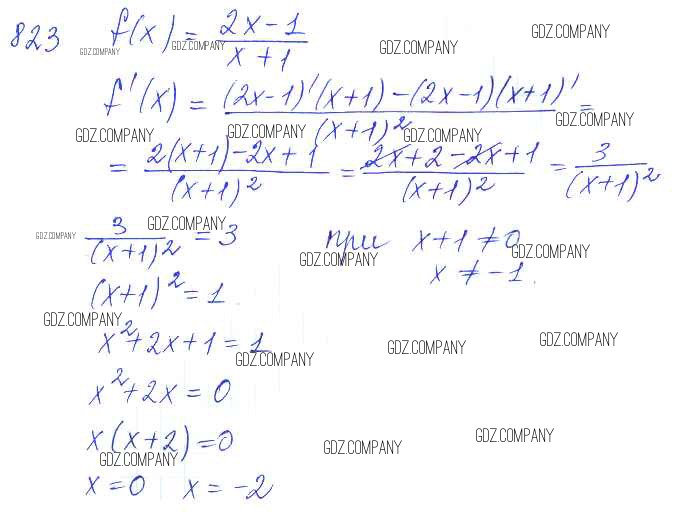 823 f(x) = (2x-1)/(x+1)
GDZ.COMPANY GDZ.COMPANY GDZ.COMPANY GDZ.COMPANY
f'(x) = ((2x-1)'(x+1)-(2x-1)(x+1)')/(x+1)² =
GDZ.COMPANY GDZ.COMPANY GDZ.COMPANY GDZ.COMPANY
= (2(x+1)-2x+1)/(x+1)² = (2x+2-2x+1)/(x+1)² = 3/(x+1)²
GDZ.COMPANY GDZ.COMPANY
3/(x+1)² = 3 при x+1≠0
GDZ.COMPANY GDZ.COMPANY
x≠-1.
(x+1)² = 1
GDZ.COMPANY
x²+2x+1=1
GDZ.COMPANY GDZ.COMPANY GDZ.COMPANY
x²+2x=0
x(x+2)=0
GDZ.COMPANY GDZ.COMPANY GDZ.COMPANY
x=0 x=-2